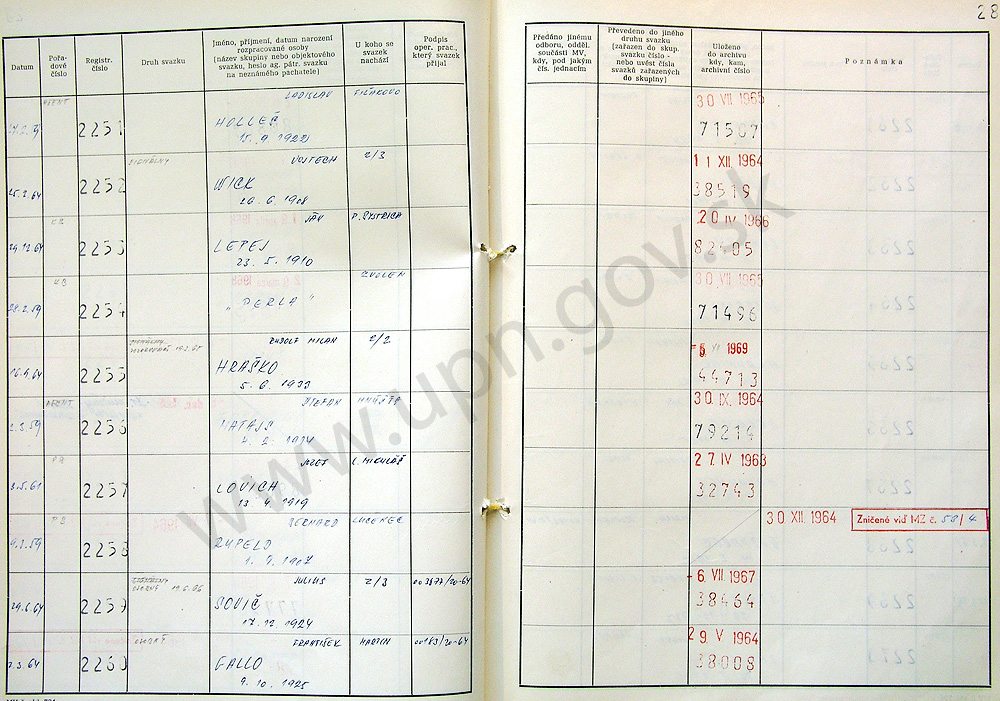 28
Datum
Pořa-
dové
číslo
Registr.
číslo
Druh svazku
Jméno, příjmení, datum narození
rozpracované osoby
(název skupiny nebo objektového
svazku, heslo ag. pátr. svazku
na neznámého pachatele)
U koho se
svazek
nachází
Podpis
oper. prac.,
který svazek
přijal
Předáno jinému
odboru, odděl.
součásti MV,
kdy, pod jakým
čís. jednacím
Převedeno do jiného
druhu svazku
(zařazen do skup.
svazku číslo -
nebo uvést čísla
svazků zařazených
do skupiny)
Uloženo
do archivu
kdy, kam,
archivní číslo
Poznámka
AGENT
2251
LADISLAV
HOLLEČ
15. 9. 1922
FIĽAKOVO
30 VII. 1965
71507
25.2.64
2252
SIGNÁLNY
VOJTECH
WICK
20. 6. 1908
2/3
11 XII. 1964
38519
29.12.64
2253
JÁN
LEPEJ
23. 5. 1910
P. BYSTRICA
20 IV 1966
82405
28.2.59
KB
2254
„PERLA"
ZVOLEN
30 VII. 1965
71496
16.9.64
2255
RUDOLF MILAN
HRAŠKO
5. 6. 1933
2/2
1969
44713
2.3.59
AGENT
2256
ŠTEFAN
MATAJS
30 IX. 1964
79214
3.5.61
2257
JOZEF
LOVICH
13 4. 1919
L. MIKULÁŠ
27 IV 1963
32743
9.2.59
2258
BERNARD
LUČENEC
30 XII. 1964
Zničené viď MZ č. 58/4
29.6.64
2259
JÚLIUS
SOVIČ
17. 12. 1924
2/3
6 VII. 1967
38464
2.3.64
2260
OSOBNÝ
FRANTIŠEK
GALLO
9. 10. 1925
MARTIN
00183/20-64
29 V 1964
38008
www.upn.gov.sk